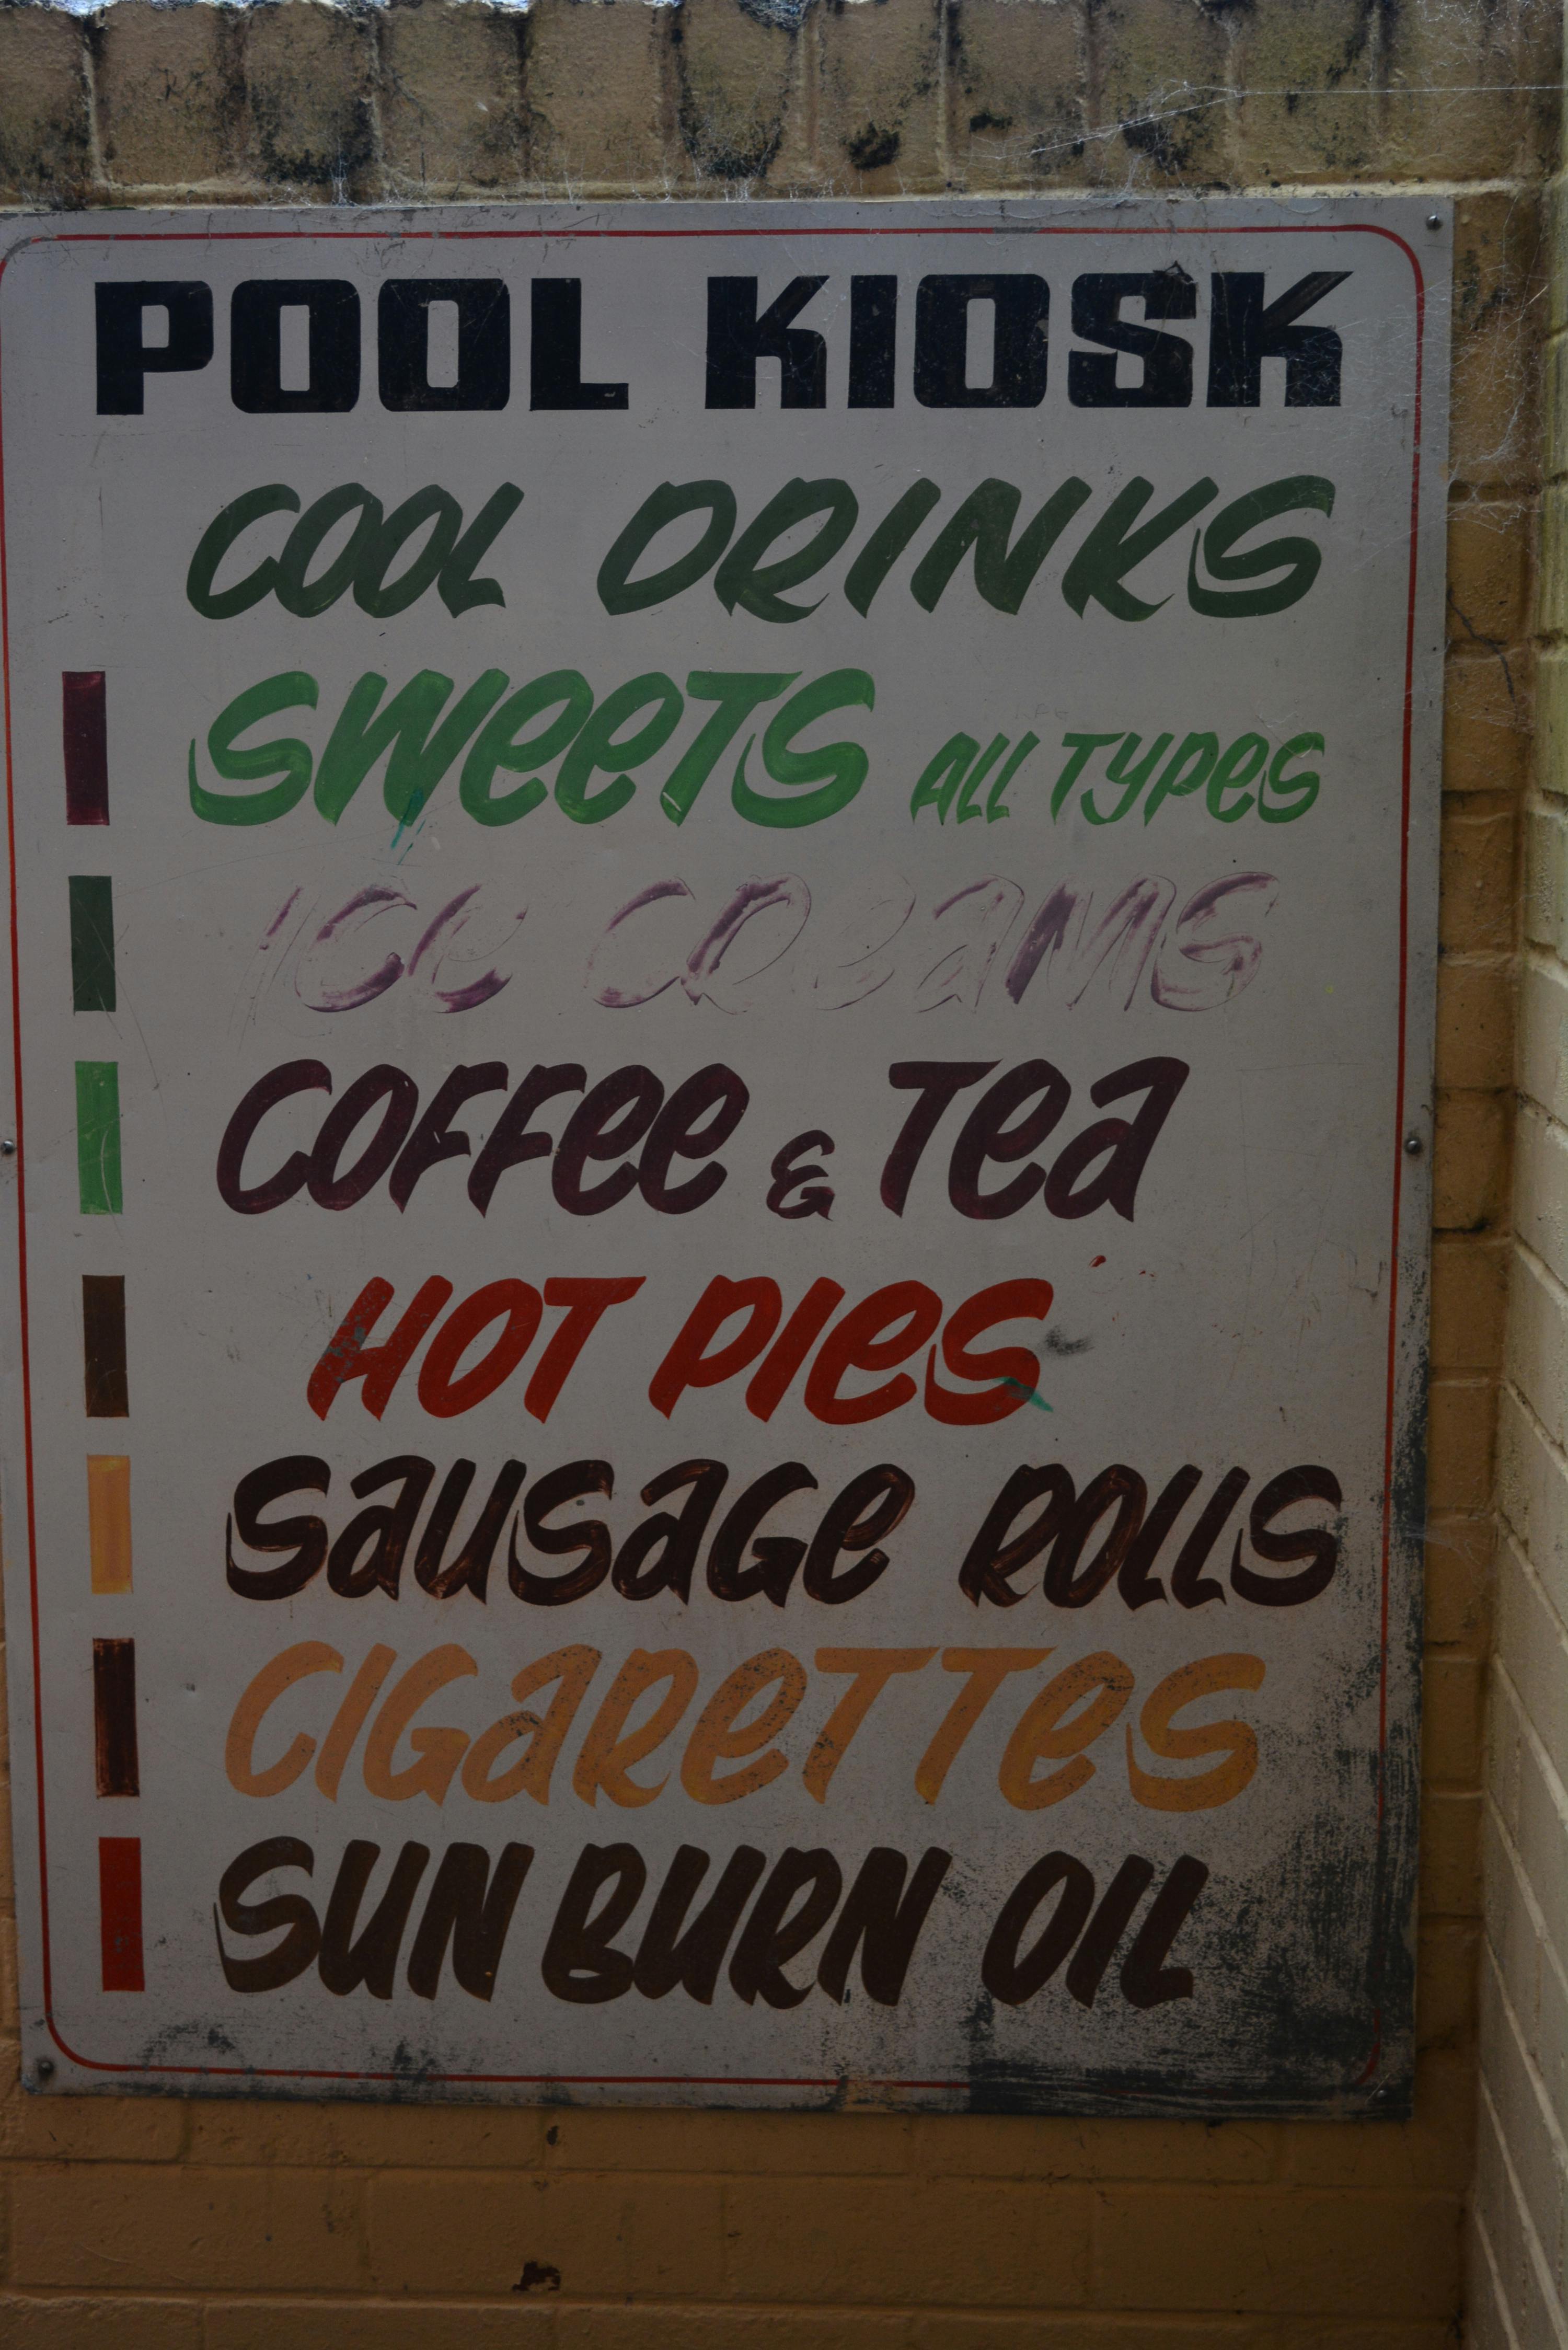 POOL KIOSK
COOL DRINKS
SWeeTS ALL TYPeS
ICe CReaMS
COFFee & Tea
HOT PIeS
SaUSaGe ROLLS
CIGaReTTeS
SUN BURN OIL